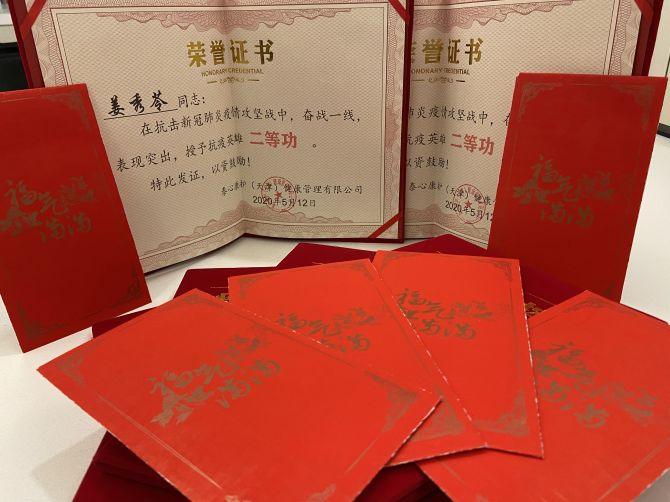 荣誉证书
HONORARY CREDENTIAL
姜秀苓 同志：
在抗击新冠肺炎疫情攻坚战中，奋战一线，
表现突出，授予抗疫英雄 二等功 。
特此发证，以资鼓励！
泰心康护（天津）健康管理有限公司
2020年5月12日
荣誉证书
HONORARY CREDENTIAL
肺炎疫情攻坚战中，
抗疫英雄 二等功 。
以资鼓励！
泰心康护（天津）健康
2020年5月12
福气
满满
福气
满满
福气
满满
福气
满满
福气
满满
福气
满满